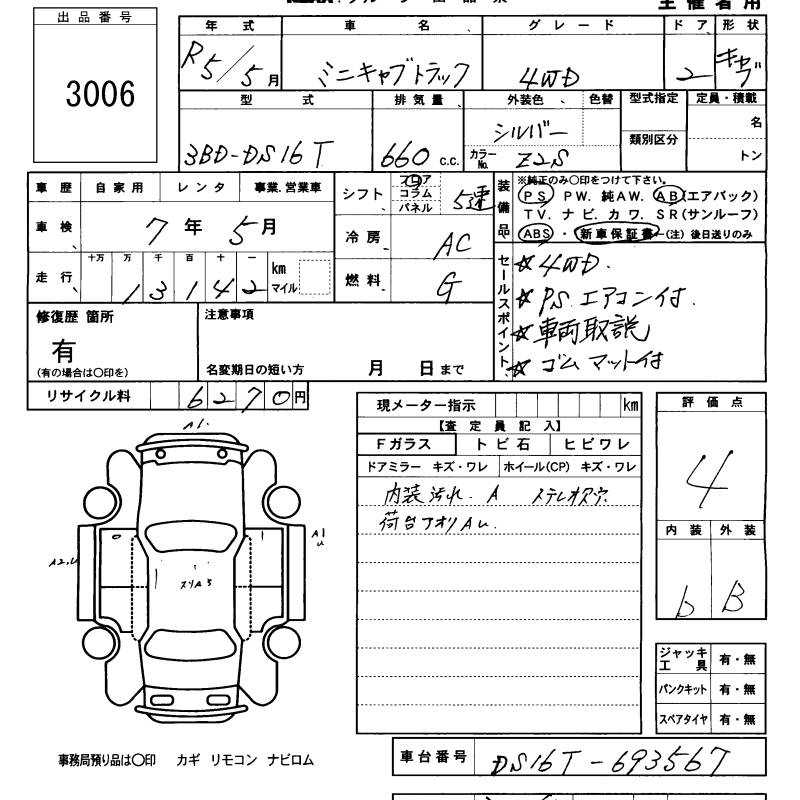 主催者用
出品番号
3006
年式 車名 グレード ドア 形状
R5/5月 ミニキャブトラック 4WD 2 キャブ
型式 排気量 外装色 色替 型式指定 定員・積載
類別区分 名
トン
3BD-DS16T 660 c.c. シルバー
カラーNo. Z2S
車歴 自家用 レンタ 事業.営業車
シフト フロア コラム パネル 5速
装備品 ※純正のみ〇印をつけて下さい。
PS PW. 純AW. AB(エアバック)
TV. ナビ. カワ. SR(サンルーフ)
ABS・新車保証書-(注)後日送りのみ
車検 7年 5月
冷房 AC
走行 十万 万 千 百 十 一
13142 km マイル
燃料 G
セールスポイント
☆4WD.
☆P.S エアコン付.
☆車両取説
☆ゴムマット付
修復歴 箇所
有
(有の場合は〇印を)
注意事項
名変期日の短い方 月 日まで
リサイクル料 6270円
現メーター指示 km
【査定員記入】
Fガラス トビ石 ヒビワレ
ドアミラー キズ・ワレ ホイール(CP) キズ・ワレ
内装汚れ. A ステレオ穴
荷台アオリAu.
評価点
4
内装 外装
b B
A1.
A2.u
A1
u
スリA3
ジャッキ工具 有・無
パンクキット 有・無
スペアタイヤ 有・無
事務局預り品は〇印 カギ リモコン ナビロム
車台番号 DS16T-693567